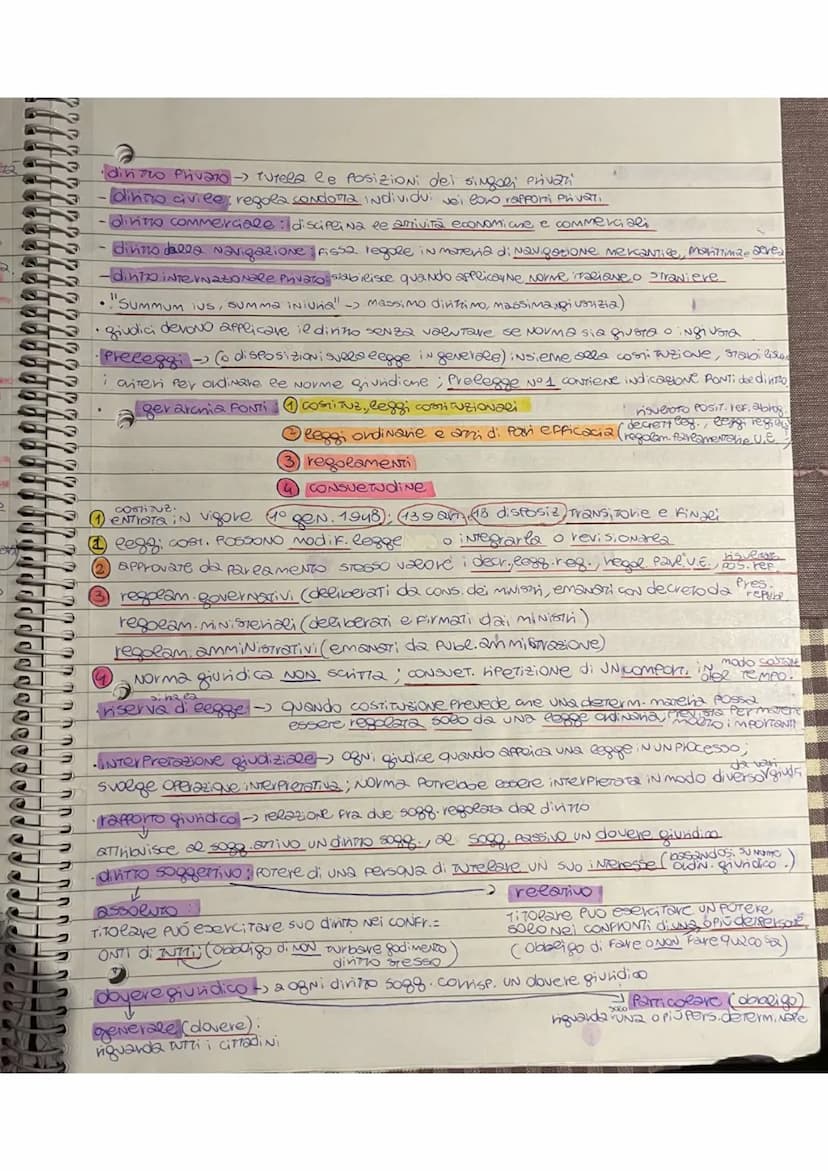 • diritto privato → tutela le posizioni dei singoli privati
- diritto civile: regola condotta individui nei loro rapporti privati
- diritto commerciale: disciplina le attività economiche e commerciali
- diritto della navigazione: fissa regole in materia di navigazione mercantile, marittima-aerea
- diritto internazionale privato: stabilisce quando applicarne norme italiane o straniere
• "summum ius, summa iniuria" → massimo diritto, massima
• giudici devono applicare il diritto senza valutare se norma sia giusta o ingiusta
• Preleggi → (o disposizioni sulla legge in generale) insieme alla costituzione, stabilisc
i criteri per ordinare le norme giuridiche; Prelegge n°1 contiene indicazione fonti del diritto
• gerarchia fonti: 1 costituz, leggi costituzionali
risultato posit. ref. abrog.
2 leggi ordinarie e atti di pari efficacia (decreti leg., leggi region
regolam. parlamentari e U.E.
3 regolamenti
4 consuetudine
1 costituz. entrata in vigore 1° gen. 1948; 139 art, 18 disposiz transitorie e finali
1 leggi cost. possono modif. legge o integrarla o revisionarla
2 approvate da parlamento stesso valore i decr. legg. reg., regol. parl. U.E., risultato pos. ref.
3 regolam. governativi (deliberati da cons. dei ministri, emanati con decreto da Pres. repubbl
regolam. ministeriali (deliberati e firmati dai ministri)
regolam. amministrativi (emanati da pubbl. amministrazione)
4 norma giuridica non scritta; consuet. ripetizione di un comport. in modo costante
nel tempo.
riserva di legge → quando costituzione prevede che una determ. materia possa
essere regolata solo da una legge ordinaria, prevista per materie
molto importanti
• interpretazione giudiziale → ogni giudice quando applica una legge in un processo,
svolge operazione interpretativa; norma potrebbe essere interpretata in modo diverso da vari giudi
• rapporto giuridico → relazione fra due sogg. regolata dal diritto
attribuisce al sogg. attivo un diritto sogg., al sogg. passivo un dovere giuridico
• diritto soggettivo: potere di una persona di tutelare un suo interesse (basandosi su norme
ordin. giuridico.)
assoluto:
titolare può esercitare suo diritto nei confr.=
onti di tutti; (obbligo di non turbare godimento
diritto stesso)
relativo
titolare può esercitare un potere
solo nei confronti di una o più det. persone
(obbligo di fare o non fare qualcosa)
dovere giuridico → a ogni diritto sogg. corrisp. un dovere giuridico
generale (dovere):
riguarda tutti i cittadini
particolare (obbligo)
riguarda solo una o più pers. determinate